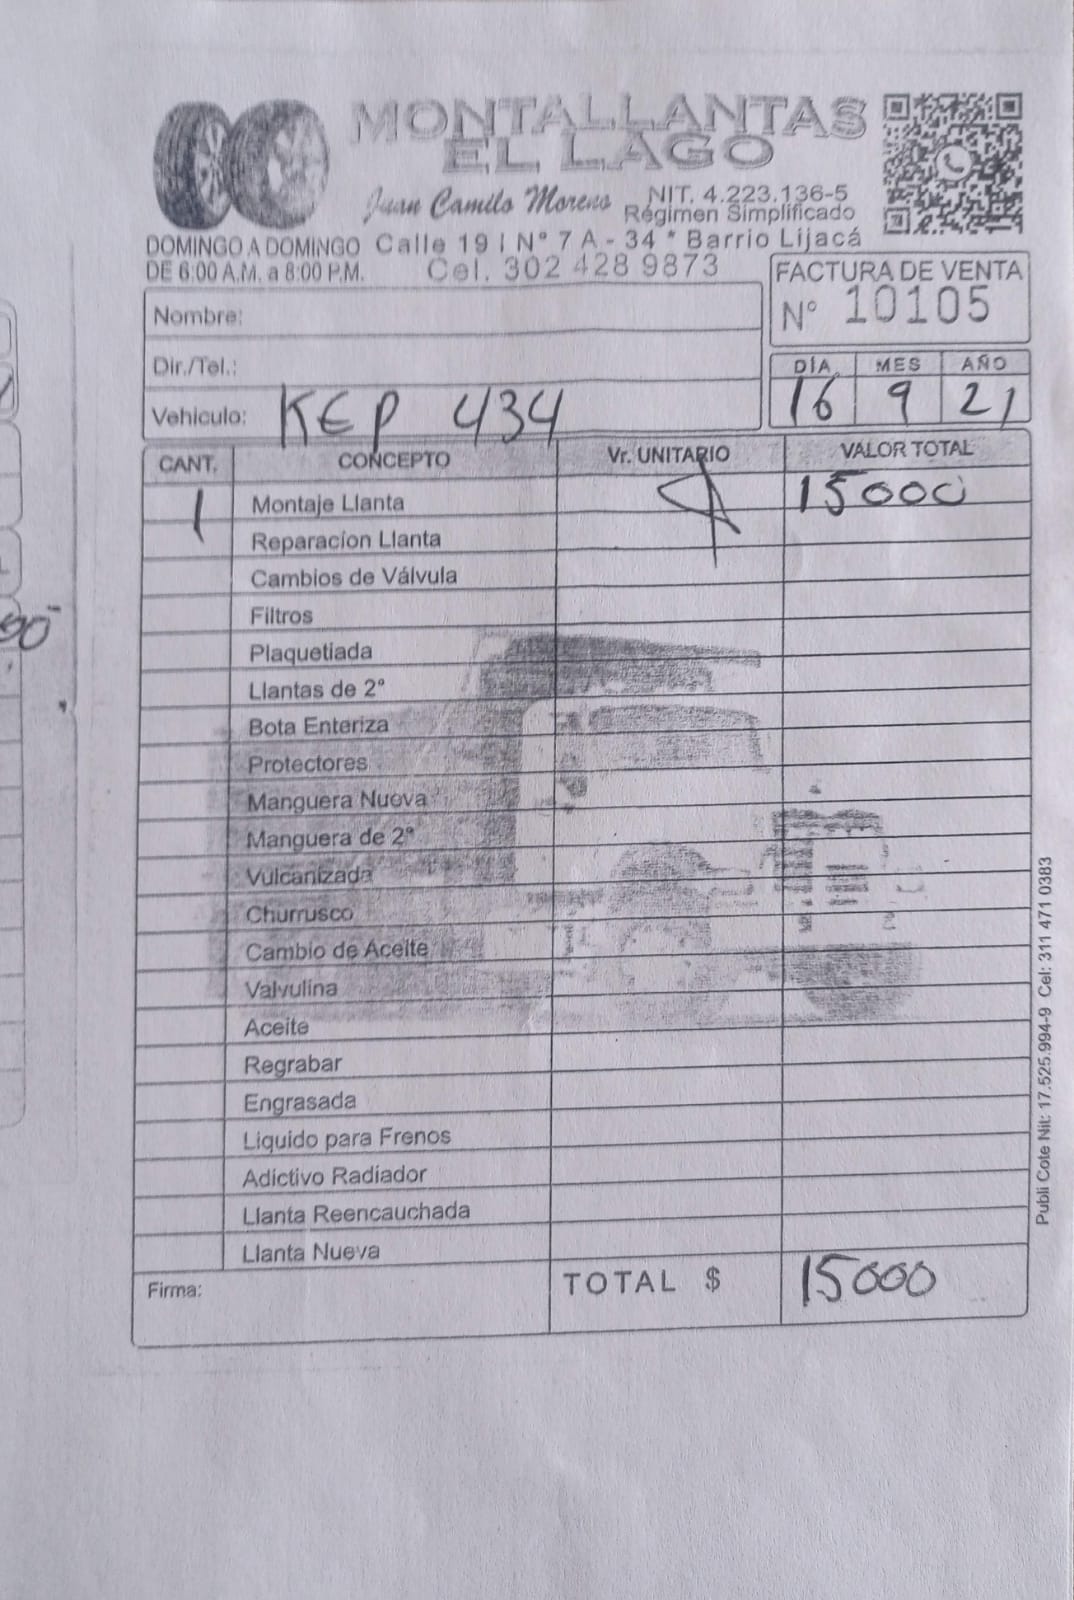 MONTALLANTAS
EL LAGO
Juan Camilo Moreno
NIT. 4.223.136-5
Régimen Simplificado
DOMINGO A DOMINGO
DE 6:00 A.M. a 8:00 P.M.
Calle 19 I N° 7 A - 34 * Barrio Lijacá
Cel. 302 428 9873
FACTURA DE VENTA
N° 10105
Nombre:
Dir./Tel.:
Vehiculo: KEP 434
DÍA MES AÑO
16 9 21
CANT. CONCEPTO Vr. UNITARIO VALOR TOTAL
1 Montaje Llanta 15000
Reparacion Llanta
Cambios de Válvula
Filtros
Plaquetiada
Llantas de 2ª
Bota Enteriza
Protectores
Manguera Nueva
Manguera de 2ª
Vulcanizada
Churrusco
Cambio de Aceite
Valvulina
Aceite
Regrabar
Engrasada
Liquido para Frenos
Adictivo Radiador
Llanta Reencauchada
Llanta Nueva
Firma:
TOTAL $ 15000
Publi Cote Nit: 17.525.994-9 Cel: 311 471 0383